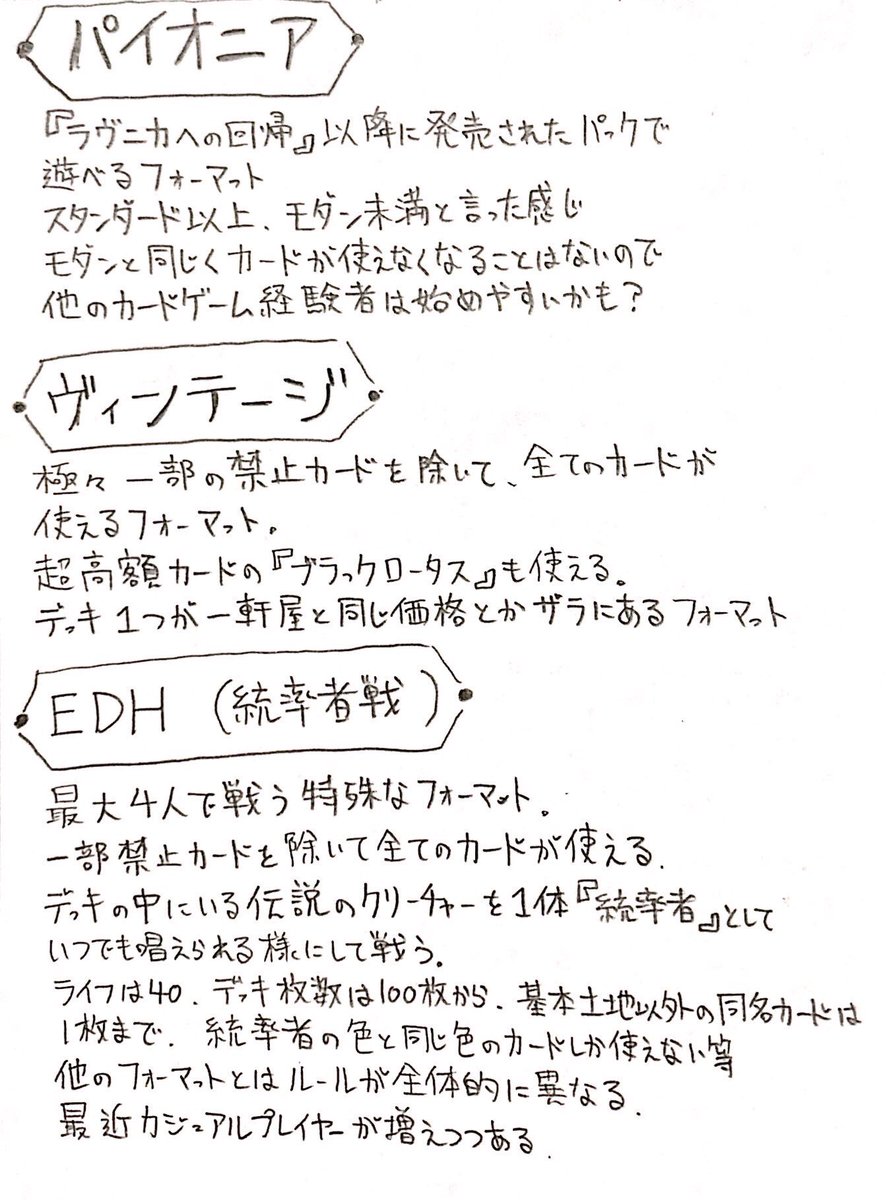 パイオニア
『ラヴニカへの回帰』以降に発売されたパックで
遊べるフォーマット
スタンダード以上、モダン未満と言った感じ
モダンと同じくカードが使えなくなることはないので
他のカードゲーム経験者は始めやすいかも?
ヴィンテージ
極々一部の禁止カードを除いて、全てのカードが
使えるフォーマット。
超高額カードの『ブラックロータス』も使える。
デッキ1つが一軒屋と同じ価格とかザラにあるフォーマット
EDH (統率者戦)
最大4人で戦う特殊なフォーマット。
一部禁止カードを除いて全てのカードが使える.
デッキの中にいる伝説のクリーチャーを1体『統率者』として
いつでも唱えられる様にして戦う。
ライフは40、デッキ枚数は100枚から、基本土地以外の同名カードは
1枚まで、統率者の色と同じ色のカードしか使えない等
他のフォーマットとはルールが全体的に異なる.
最近カジュアルプレイヤーが増えつつある.